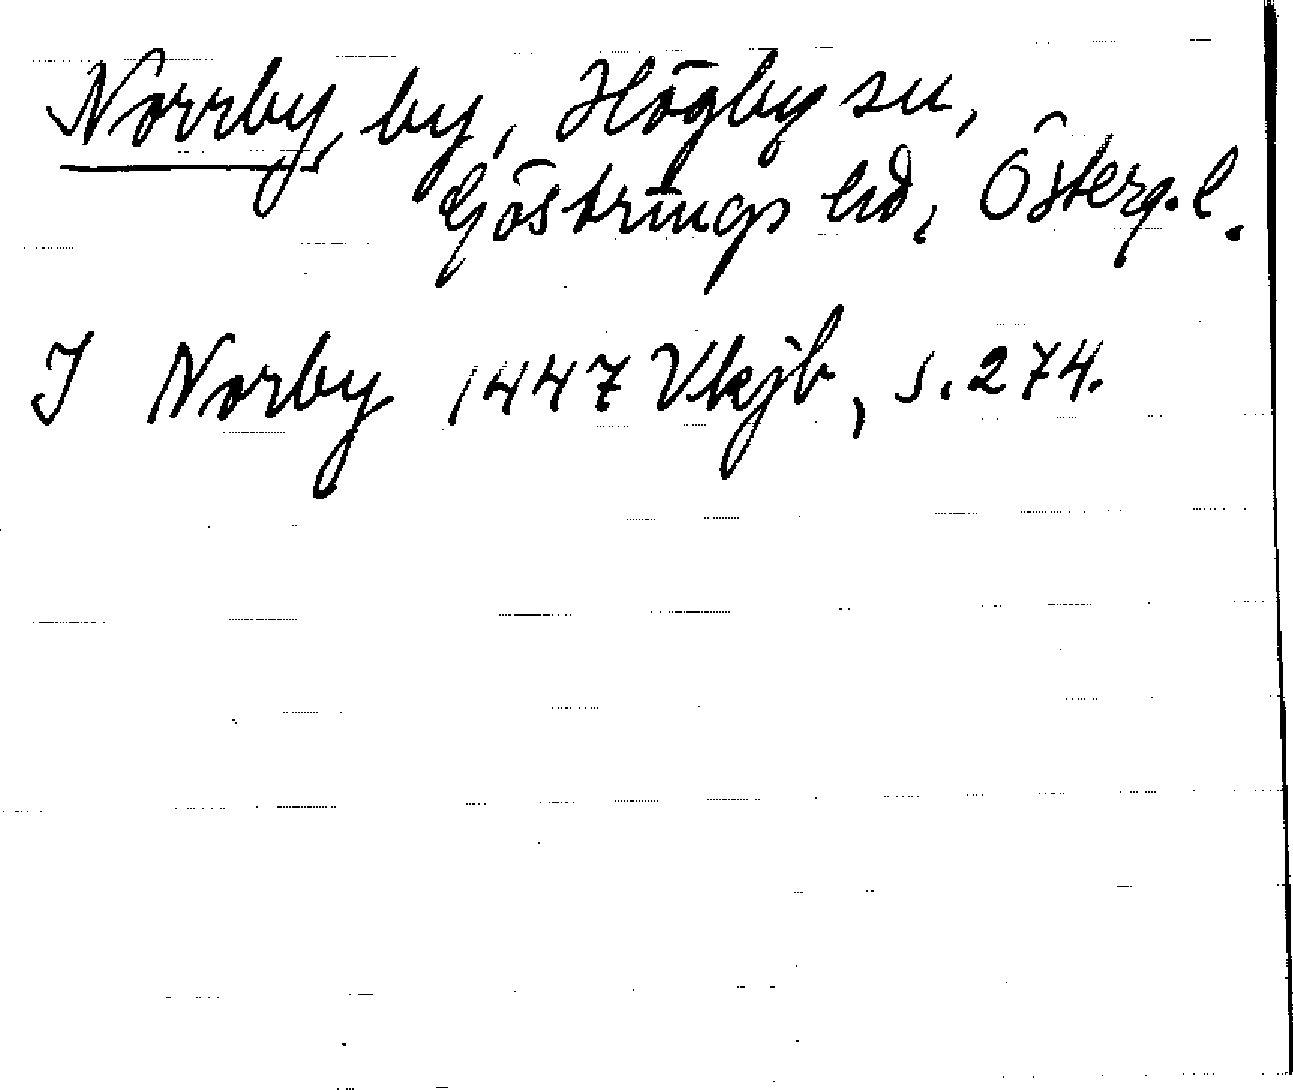 Norrby, by, Högby sn,
Göstrings hd, Österg. l.
I Norby 1447 Vkjb, s. 274.